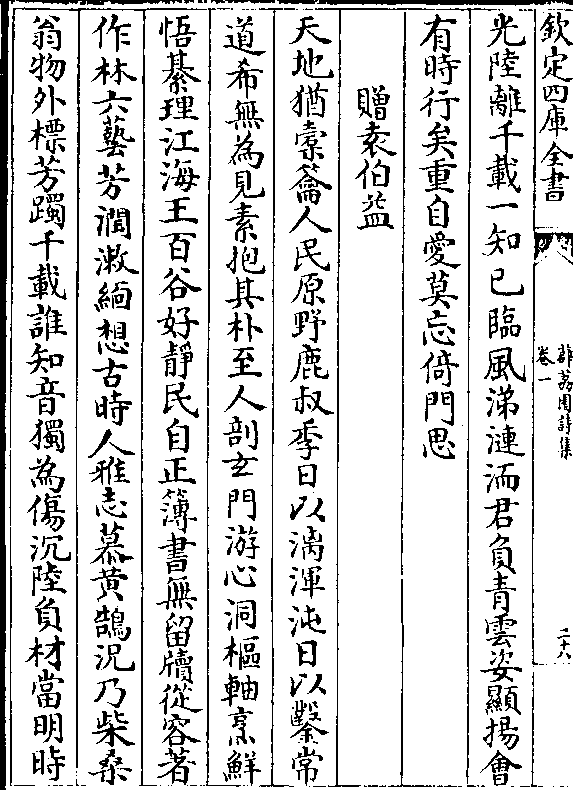 欽定四庫全書
薜荔園詩集
卷一
二十八
光陸離千載一知己臨風涕漣洏君負青雲姿顯揚會
有時行矣重自愛莫忘倚門思
贈袁伯益
天地猶橐籥人民原野鹿叔季日以漓渾沌日以鑿常
道希無為見素抱其朴至人剖玄門游心洞樞軸烹鮮
悟綦理江海王百谷好靜民自正簿書無留牘從容著
作林六藝芳潤漱緬想古時人雅志慕黄鵠況乃柴桑
翁物外標芳躅千載誰知音獨為傷沉陸負材當明時